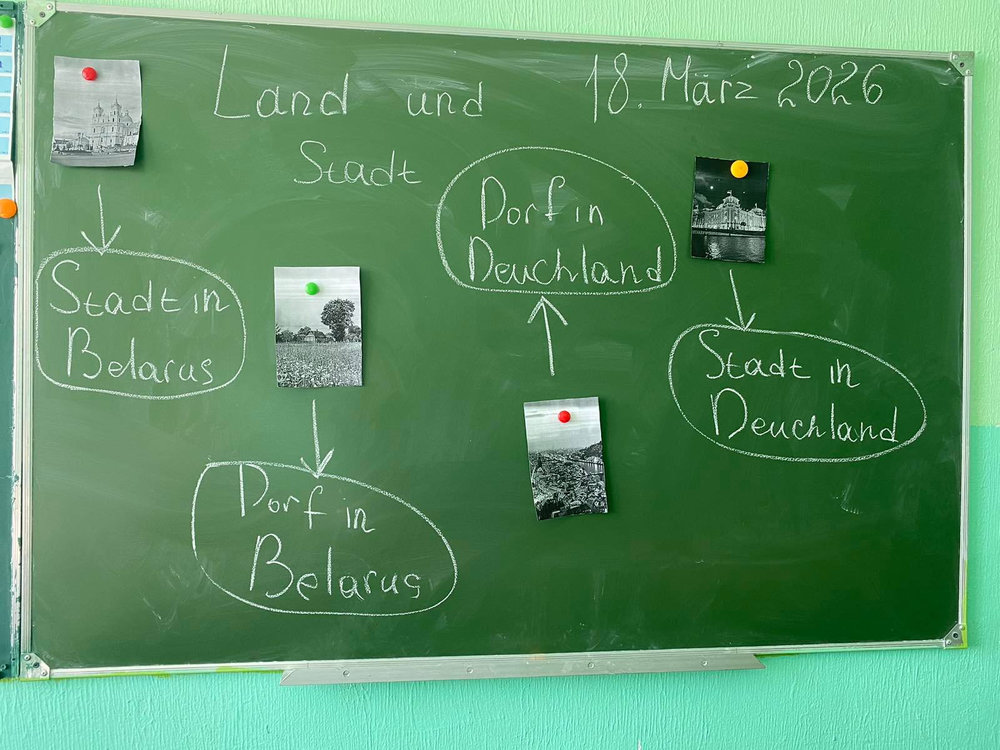 Land und
Stadt
18. März 2026
Dorf in
Deuchland
Stadt in
Belarus
Stadt in
Deuchland
Dorf in
Belarus